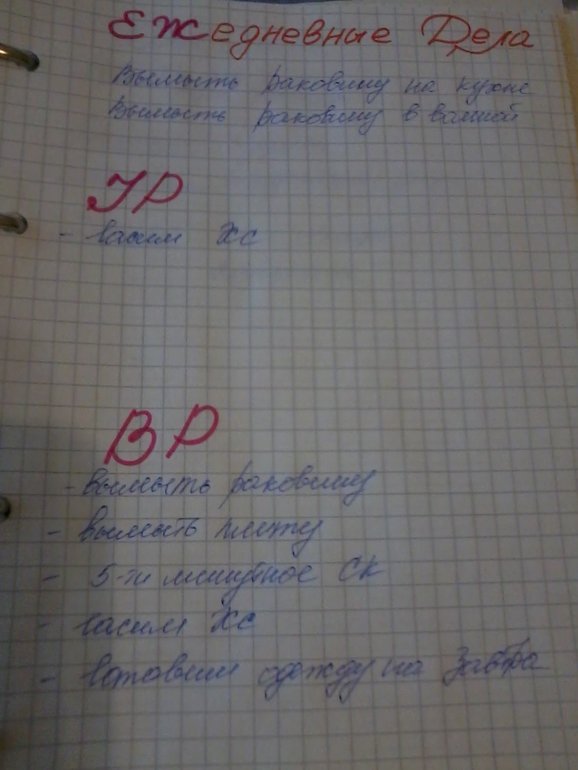 Ежедневные Дела
Вымыть раковину на кухне
Вымыть раковину в ванной
УР
- гасим Хс
ВР
- вымыть раковину
- вымыть плиту
- 5-ти минутное СК
- гасим Хс
- готовим одежду на завтра